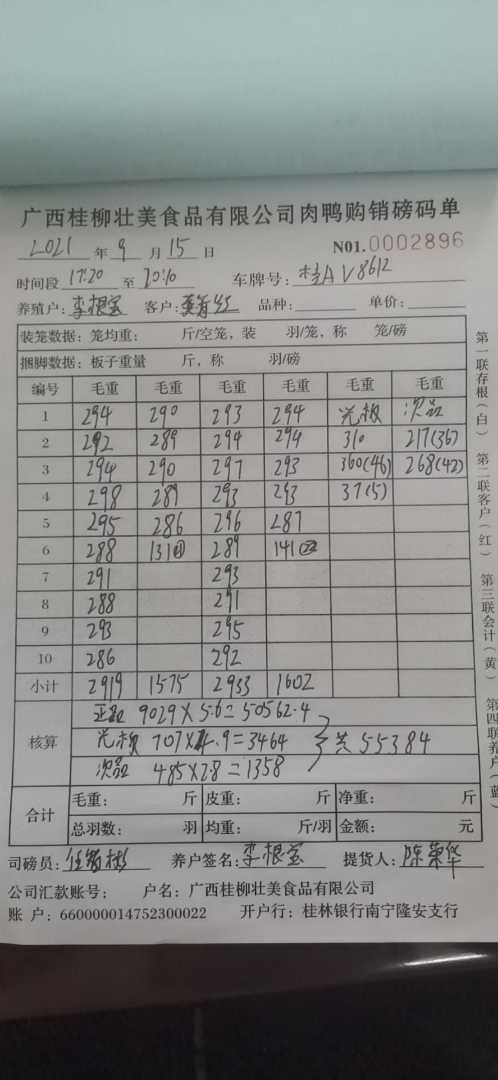 广西桂柳壮美食品有限公司肉鸭购销磅码单
2021 年 9 月 15 日 N01.0002896
时间段 17:20 至 20:10 车牌号: 桂AV8612
养殖户: 李根宝 客户: 品种: 单价:
装笼数据: 笼均重: 斤/空笼, 装 羽/笼, 称 笼/磅
捆脚数据: 板子重量 斤, 称 羽/磅
编号 毛重 毛重 毛重 毛重 毛重 毛重
1 294 290 293 294 光板 次品
2 292 289 294 294 310 217(36)
3 294 290 297 293 360(46) 268(42)
4 298 289 293 293 37(5)
5 295 286 296 287
6 288 131 289 141
7 291 293
8 288 291
9 293 295
10 286 292
小计 2919 1575 2933 1602
核算
正品 9029×5.6=50562.4
光板 707×4.9=3464
次品 485×2.8=1358
共55384
合计
毛重: 斤 皮重: 斤 净重: 斤
总羽数: 羽 均重: 斤/羽 金额: 元
司磅员: 养户签名: 李根宝 提货人: 陈荣华
公司汇款账号: 户名: 广西桂柳壮美食品有限公司
账 户: 660000014752300022 开户行: 桂林银行南宁隆安支行
第一联存根(白) 第二联客户(红) 第三联会计(黄) 第四联养户(蓝)